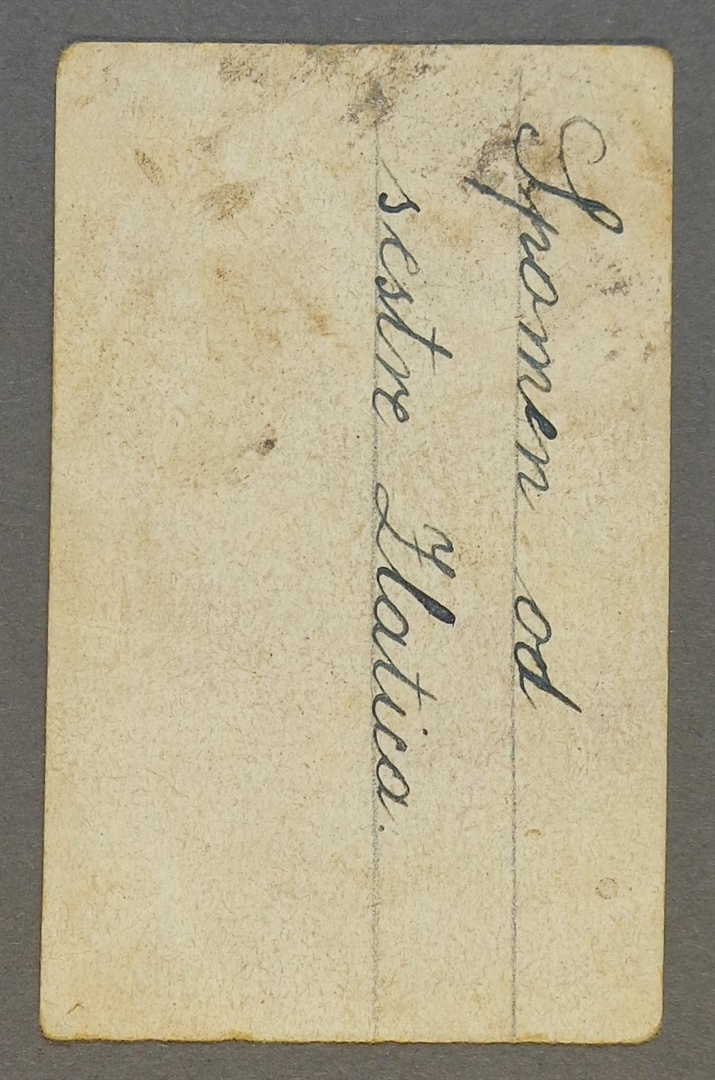 Spomen od
sestre Zlatica.